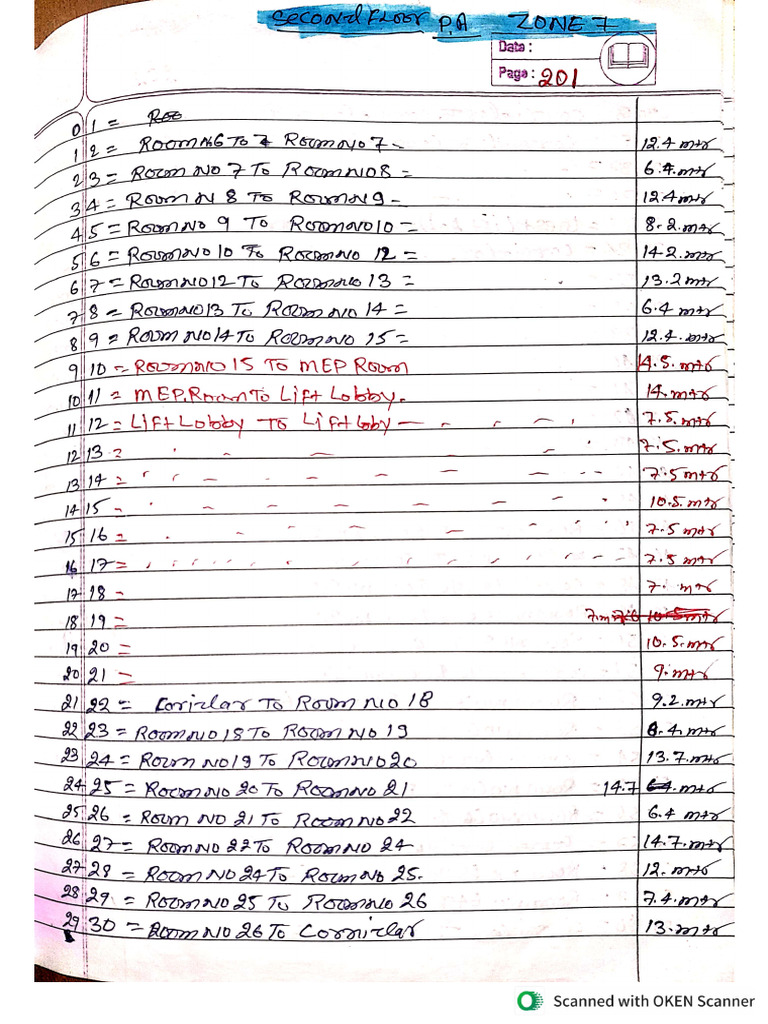 Second Floor P.A ZONE 7
Data :
Page : 201
0 1 = Roo
1 2 = Room N6 To 7 Room No 7 - 12.4 mtr
2 3 = Room No 7 To Room No 8 = 6.4 mtr
3 4 = Room N 8 To Room N 9 - 12.4 mtr
4 5 = Room No 9 To Room No 10 = 8.2. mtr
5 6 = Room No 10 To Room No 12 = 14.2. mtr
6 7 = Room No 12 To Room No 13 = 13.2 mtr
7 8 = Room No 13 To Room No 14 = 6.4 mtr
8 9 = Room No 14 To Room No 15 = 12.4. mtr
9 10 = Room No 15 To MEP Room 14.5. mtr
10 11 = MEP. Room To Lift Lobby. 14. mtr
11 12 = Lift Lobby To Lift Loby - 7.5. mtr
12 13 = 7.5. mtr
13 14 = 7.5 mtr
14 15 - 10.5. mtr
15 16 = 7.5 mtr
16 17 = 7.5 mtr
17 18 - 7. mtr
18 19 = 10.5 mtr
19 20 = 10.5. mtr
20 21 = 9. mtr
21 22 = Coriclar To Room No 18 9.2. mtr
22 23 = Room No 18 To Room No 19 6.4. mtr
23 24 = Room No 19 To Room No 20 13.7. mtr
24 25 = Room No 20 To Room No 21 14.7 6.4. mtr
25 26 = Room No 21 To Room No 22 6.4 mtr
26 27 = Room No 22 To Room No 24 14.7. mtr
27 28 = Room No 24 To Room No 25. 12. mtr
28 29 = Room No 25 To Room No 26 7.4. mtr
29 30 = Room No 26 To Corriclar 13. mtr
Scanned with OKEN Scanner